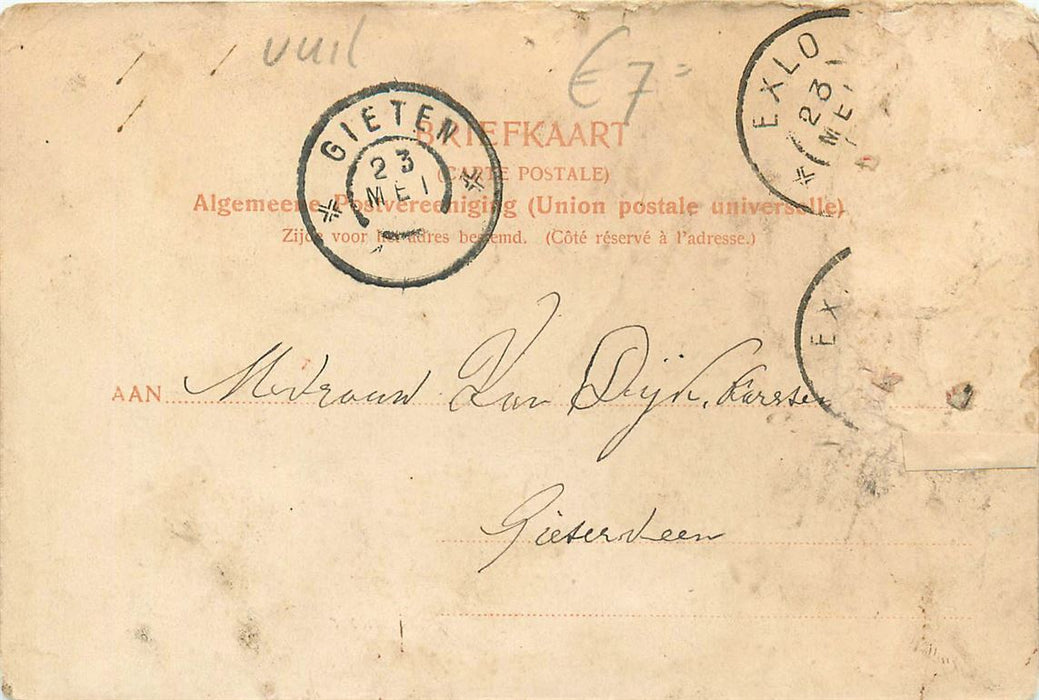 vuil
€7=
GIETEN
23
MEI
EXLO
23
MEI
BRIEFKAART
(CARTE POSTALE)
Algemeene Postvereeniging (Union postale universelle)
Zijde voor het adres bestemd. (Côté réservé à l'adresse.)
EX
AAN Mevrouw Van Dijk,
Gieterveen